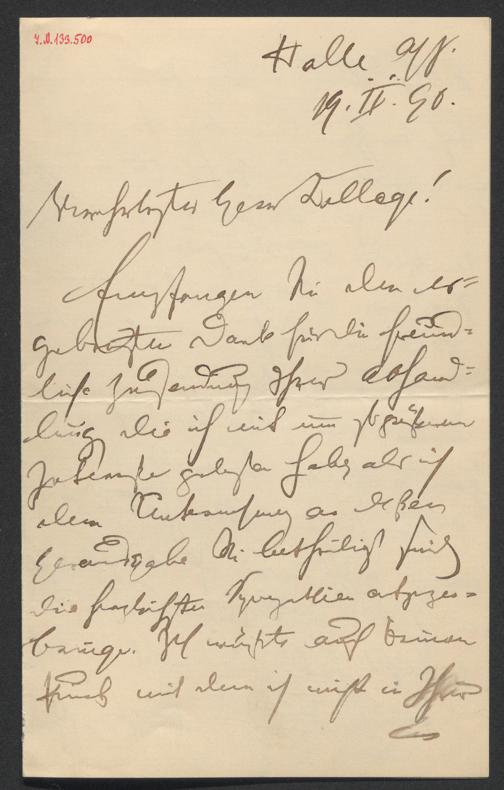 I.N. 133.500
Halle a/S.
19. II. 90.
Verehrtester Herr College!
Empfangen Sie den er=
gebensten Dank für die freund=
liche Zusendung Ihrer Abhand=
lung, die ich mit um so größerem
Interesse gelesen habe, als ich
dem Unternehmen an deßen
Herausgabe Sie betheiligt sind,
die herzlichsten Sympathien entgegen=
bringe. Ich wüßte auch keinen
Punkt mit dem ich nicht in Ihrer